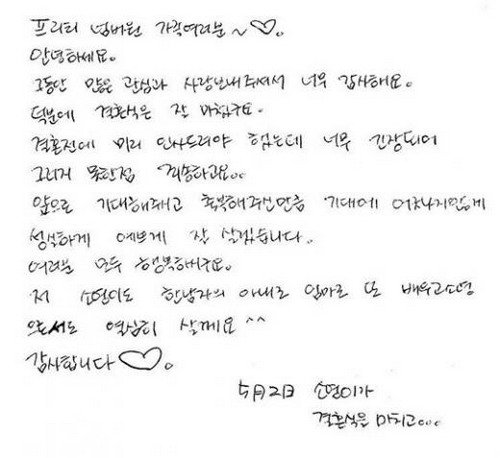 프리티 넘버원 가족여러분~♡.
안녕하세요.
그동안 많은 관심과 사랑보내주셔서 너무 감사해요.
덕분에 결혼식은 잘 마쳤구요.
결혼전에 미리 인사드려야 했는데 너무 긴장되어
그러지 못한점 죄송하고요..
앞으로 기대해주시고 축복해주신만큼 기대에 어긋나지않게
성실하게 예쁘게 잘 살겠습니다.
여러분 모두 행복하시구요.
저 소연이도 한남자의 아내로 엄마로 또 배우고소영
으로서도 열심히 살께요 ^^
감사합니다♡.
5月2日 소연이가
결혼식을 마치고...